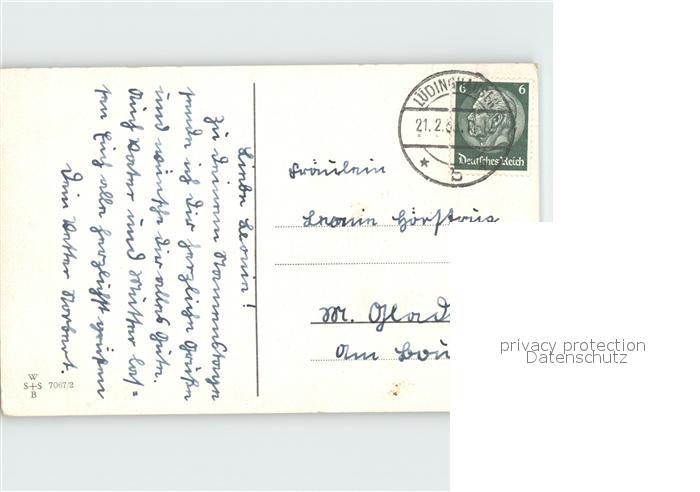 Liebe Leonie!
Zu deinem Namenstage
sende ich dir herzliche Grüße
und wünsche dir alles Gute.
Auch Vater und Mutter las=
sen Euch alle herzlichst grüßen
Dein Vetter Norbert.
W
S+S 7067/2
B
LÜDINGHAUSEN
21.2.
* b
6 6
Deutsches Reich
Fräulein
Leonie
M. Glad
Am
privacy protection
Datenschutz